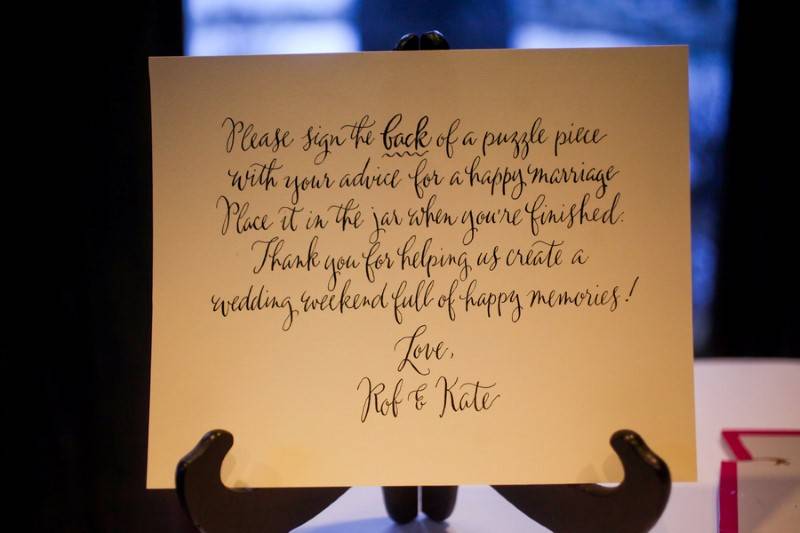 Please sign the back of a puzzle piece
with your advice for a happy marriage
Place it in the jar when you're finished.
Thank you for helping us create a
wedding weekend full of happy memories!
Love,
Rob & Kate